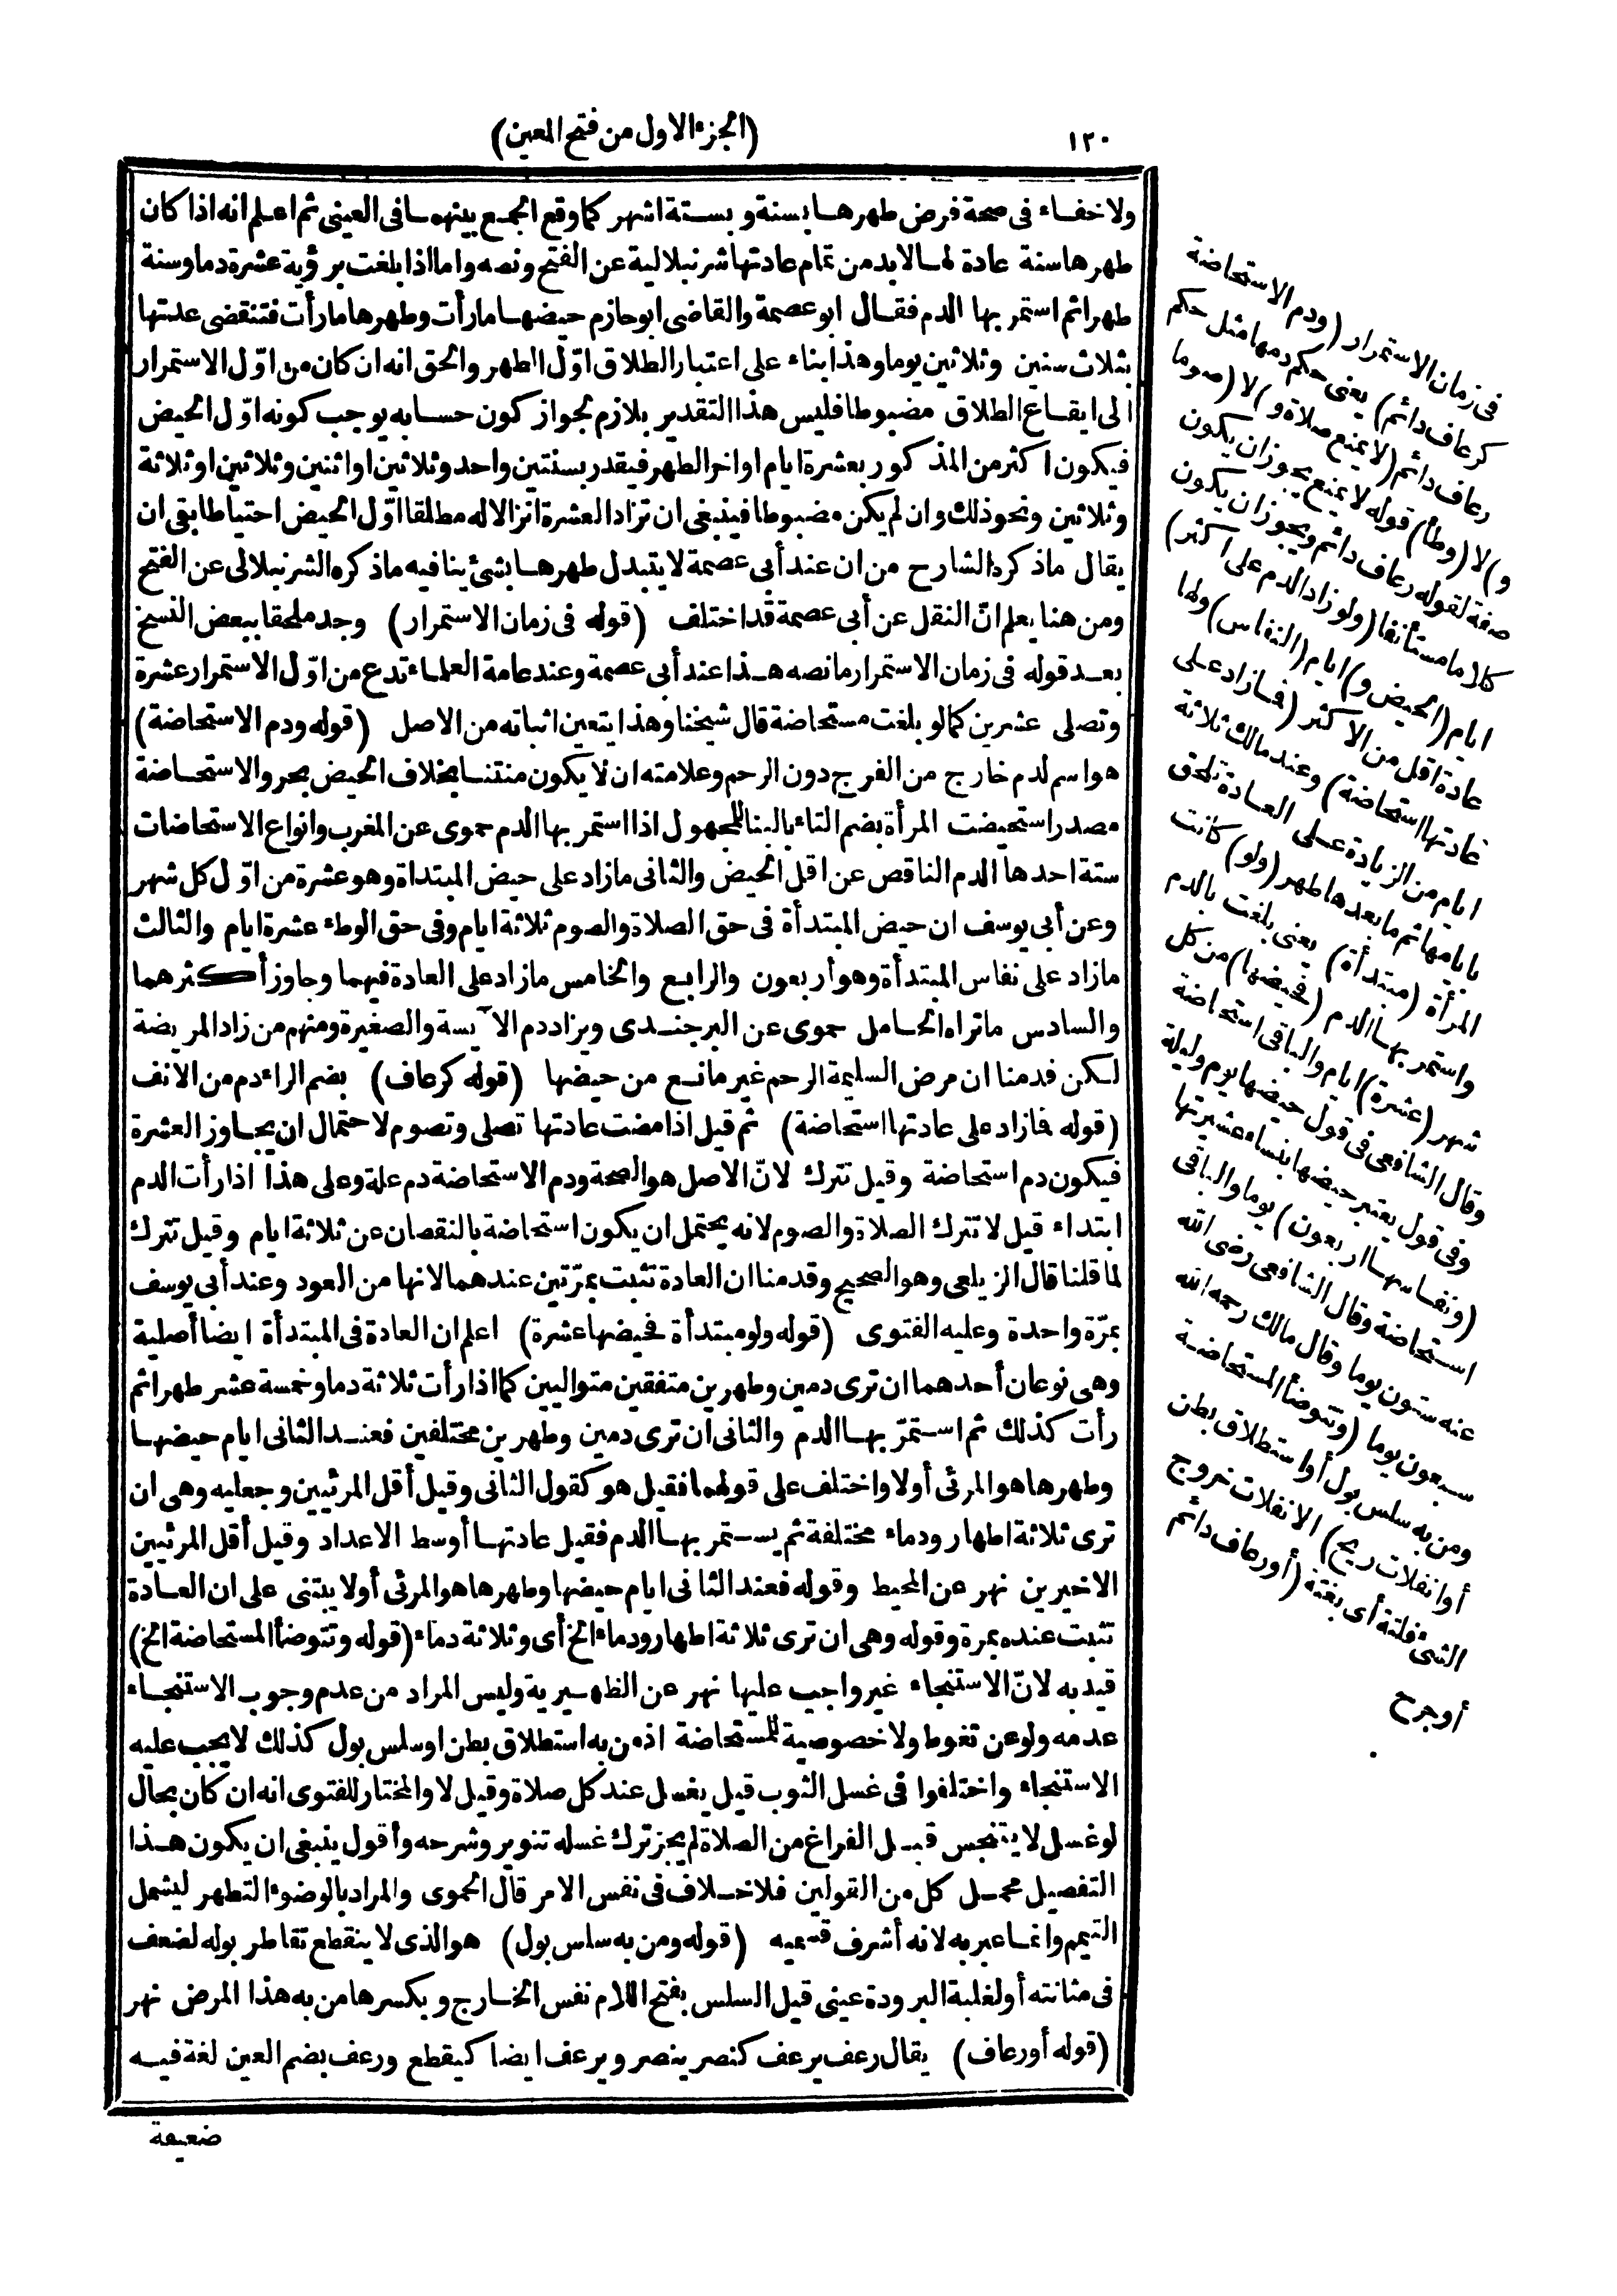 ١٢٠
(الجزء الاول من فتح المعين)
ولا خفاء فى صحة فرض طهرها بسنة وبستة اشهر كما وقع الجمع بينهما فى العينى ثم اعلم انه اذا كان
طهرها سنة عادة لها لابد من تمام عادتها شرنبلالية عن الفتح ونصه واما اذا بلغت برؤية عشرة دما وسنة
طهرا ثم استمر بها الدم فقال ابو عصمة والقاضى ابو حازم حيضها ما رأت وطهرها ما رأت فتنقضى عدتها
بثلاث سنين وثلاثين يوما وهذا بناء على اعتبار الطلاق اوّل الطهر والحق انه ان كان من اوّل الاستمرار
الى ايقاع الطلاق مضبوطا فليس هذا التقدير بلازم لجواز كون حسابه يوجب كونه اوّل الحيض
فيكون اكثر من المذكور بعشرة ايام او اخر الطهر فيقدر بسنتين واحد وثلاثين او اثنين وثلاثين او ثلاثة
وثلاثين ونحو ذلك وان لم يكن مضبوطا فينبغى ان تزاد العشرة انزالا له مطلقا اوّل الحيض احتياطا بقى ان
يقال ما ذكره الشارح من ان عند أبى عصمة لا يتبدل طهرها بشئ ينافيه ما ذكره الشرنبلالى عن الفتح
ومن هنا يعلم انّ النقل عن أبى عصمة قد اختلف (قوله فى زمان الاستمرار) وجد ملحقا ببعض النسخ
بعد قوله فى زمان الاستمرار ما نصه هذا عند أبى عصمة وعند عامة العلماء تدع من اوّل الاستمرار عشرة
وتصلى عشرين كما لو بلغت مستحاضة قال شيخنا وهذا يتعين اثباته من الاصل (قوله ودم الاستحاضة)
هو اسم لدم خارج من الفرج دون الرحم وعلامته ان لا يكون منتنا بخلاف الحيض بحر والاستحاضة
مصدر استحيضت المرأة بضم التاء بالبنا للمجهول اذا استمر بها الدم حموى عن المغرب وانواع الاستحاضات
ستة احدها الدم الناقص عن اقل الحيض والثانى ما زاد على حيض المبتدأة وهو عشرة من اوّل كل شهر
وعن أبى يوسف ان حيض المبتدأة فى حق الصلاة والصوم ثلاثة ايام وفى حق الوطء عشرة ايام والثالث
ما زاد على نفاس المبتدأة وهو أربعون والرابع والخامس ما زاد على العادة فيهما وجاوز أكثرهما
والسادس ما تراه الحامل حموى عن البرجندى ويزاد دم الآيسة والصغيرة ومنهم من زاد المريضة
لكن قدمنا ان مرض السليمة الرحم غير مانع من حيضها (قوله كرعاف) بضم الراء دم من الانف
(قوله فما زاد على عادتها استحاضة) ثم قيل اذا مضت عادتها تصلى وتصوم لاحتمال ان يجاوز العشرة
فيكون دم استحاضة وقيل تترك لانّ الاصل هو الصحة ودم الاستحاضة دم علة وعلى هذا اذا رأت الدم
ابتداء قيل لا تترك الصلاة والصوم لانه يحتمل ان يكون استحاضة بالنقصان عن ثلاثة ايام وقيل تترك
لما قلنا قال الزيلعى وهو الصحيح وقدمنا ان العادة تثبت بمرّتين عندهما لانها من العود وعند أبى يوسف
بمرّة واحدة وعليه الفتوى (قوله ولو مبتدأة فحيضها عشرة) اعلم ان العادة فى المبتدأة ايضا أصلية
وهى نوعان أحدهما ان ترى دمين وطهرين متفقين متواليين كما اذا رأت ثلاثة دما وخمسة عشر طهرا ثم
رأت كذلك ثم استمرّ بها الدم والثانى ان ترى دمين وطهرين مختلفين فعند الثانى ايام حيضها
وطهرها هو المرئى أولا واختلف على قولهما فقيل هو كقول الثانى وقيل أقل المرئيين وجعليه وهى ان
ترى ثلاثة اطهار ودماء مختلفة ثم يستمر بها الدم فقيل عادتها أوسط الاعداد وقيل أقل المرئيين
الاخيرين نهر عن المحيط وقوله فعند الثانى ايام حيضها وطهرها هو المرئى أولا يبتنى على ان العادة
تثبت عنده بمرة وقوله وهى ان ترى ثلاثة اطهار ودماء الخ أى وثلاثة دماء (قوله وتتوضأ المستحاضة الخ)
قيد به لانّ الاستنجاء غير واجب عليها نهر عن الظهيرية وليس المراد من عدم وجوب الاستنجاء
عدمه ولو عن تغوط ولا خصوصية للمستحاضة اذ من به استطلاق بطن او سلس بول كذلك لا يجب عليه
الاستنجاء واختلفوا فى غسل الثوب قيل يغسل عند كل صلاة وقيل لا والمختار للفتوى انه ان كان بحال
لو غسل لا يتنجس قبل الفراغ من الصلاة لم يجز ترك غسله تنوير وشرحه وأقول ينبغى ان يكون هذا
التفصيل محمل كل من القولين فلا خلاف فى نفس الامر قال الحموى والمراد بالوضوء التطهر ليشمل
التيمم وانما عبر به لانه أشرف قسميه (قوله ومن به سلس بول) هو الذى لا ينقطع تقاطر بوله لضعف
فى مثانته أو لغلبة البرودة عينى قيل السلس بفتح اللام نفس الخارج وبكسرها من به هذا المرض نهر
(قوله أو رعاف) يقال رعف يرعف كنصر ينصر ويرعف ايضا كيقطع ورعف بضم العين لغة فيه
ضعيفة
فى زمان الاستمرار (ودم الاستحاضة
كرعاف دائم) يعنى حكم دمها مثل حكم
رعاف دائم (لا يمنع صلاة و) لا (صوما
و) لا (وطأ) قوله لا يمنع يجوز ان يكون
صفة لقوله رعاف دائم ويجوز ان يكون
كلاما مستأنفا (ولو زاد الدم على اكثر)
ايام (الحيض و) ايام (النفاس) ولها
عادة اقل من الاكثر (فما زاد على
عادتها استحاضة) وعند مالك ثلاثة
ايام من الزيادة على العادة تلحق
بايامها ثم ما بعدها طهر (ولو) كانت
المرأة (مبتدأة) يعنى بلغت بالدم
واستمر بها الدم (فحيضها) من كل
شهر (عشرة) ايام والباقى استحاضة
وقال الشافعى فى قول حيضها يوم وليلة
وفى قول يعتبر حيضها بنساء عشيرتها
(ونفاسها اربعون) يوما والباقى
استحاضة وقال الشافعى رضى الله
عنه ستون يوما وقال مالك رحمه الله
سبعون يوما (وتتوضأ المستحاضة
ومن به سلس بول أو استطلاق بطن
أو انفلات ريح) الانفلات خروج
الشئ فلتة أى بغتة (أو رعاف دائم
أو جرح